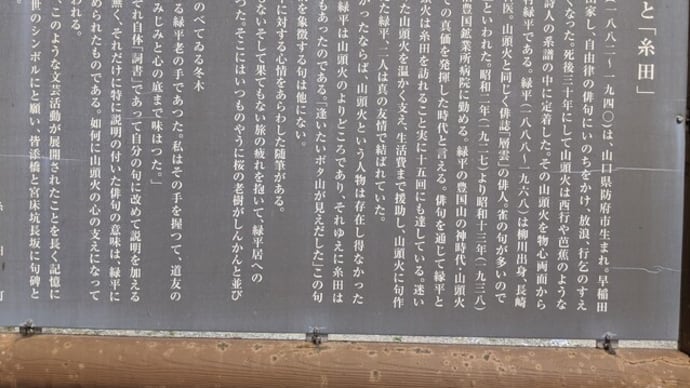 と「糸田」
(一八八二〜一九四〇)は、山口県防府市生まれ。早稲田
出家し、自由律の俳句にいのちをかけ、放浪、行乞のすえ
くなった。死後三十年にして山頭火は西行や芭蕉のような
詩人の系譜の中に定着した。その山頭火を物心両面から
村緑平である。緑平(一八八八〜一九六八)は柳川出身、長崎
医。山頭火と同じく俳誌「層雲」の俳人。雀の句が多いので
といわれた。昭和二年(一九二七)より昭和十三年(一九三八)
豊国鉱業所病院に勤める。緑平の豊国山の神時代・山頭火
の真価を発揮した時代と言える。俳句を通して緑平と
火は糸田を訪れること実に十五回にも達している。迷い
た山頭火を温かく支え、生活費まで援助し、山頭火に句作
た緑平、二人は真の友情で結ばれていた。
かったならば、山頭火という人物は存在し得なかった
緑平は山頭火のよりどころであり、それゆえに糸田は
もあったのである。「逢いたいボタ山が見えだした」この句
を象徴する句は他にない。
に対する心情をあらわした随筆がある。
ないそして果てもない旅の疲れを抱いて、緑平居への
った。そこにはいつものやうに桜の老樹がしんかんと並び
のべてゐる冬木
る緑平老の手であつた。私はその手を握つて、道友の
みじみと心の底まで味はつた。」
それ自体「詞書」であって自分の句に改めて説明を加える
無く、それだけに特に説明の付いた俳句の意味は、緑平に
められたものである。如何に山頭火の心の支えになって
われる。
このような文芸活動が展開されたことを長く記憶に
世のシンボルにと願い、皆添橋と宮床坑長坂に句碑と
糸田町